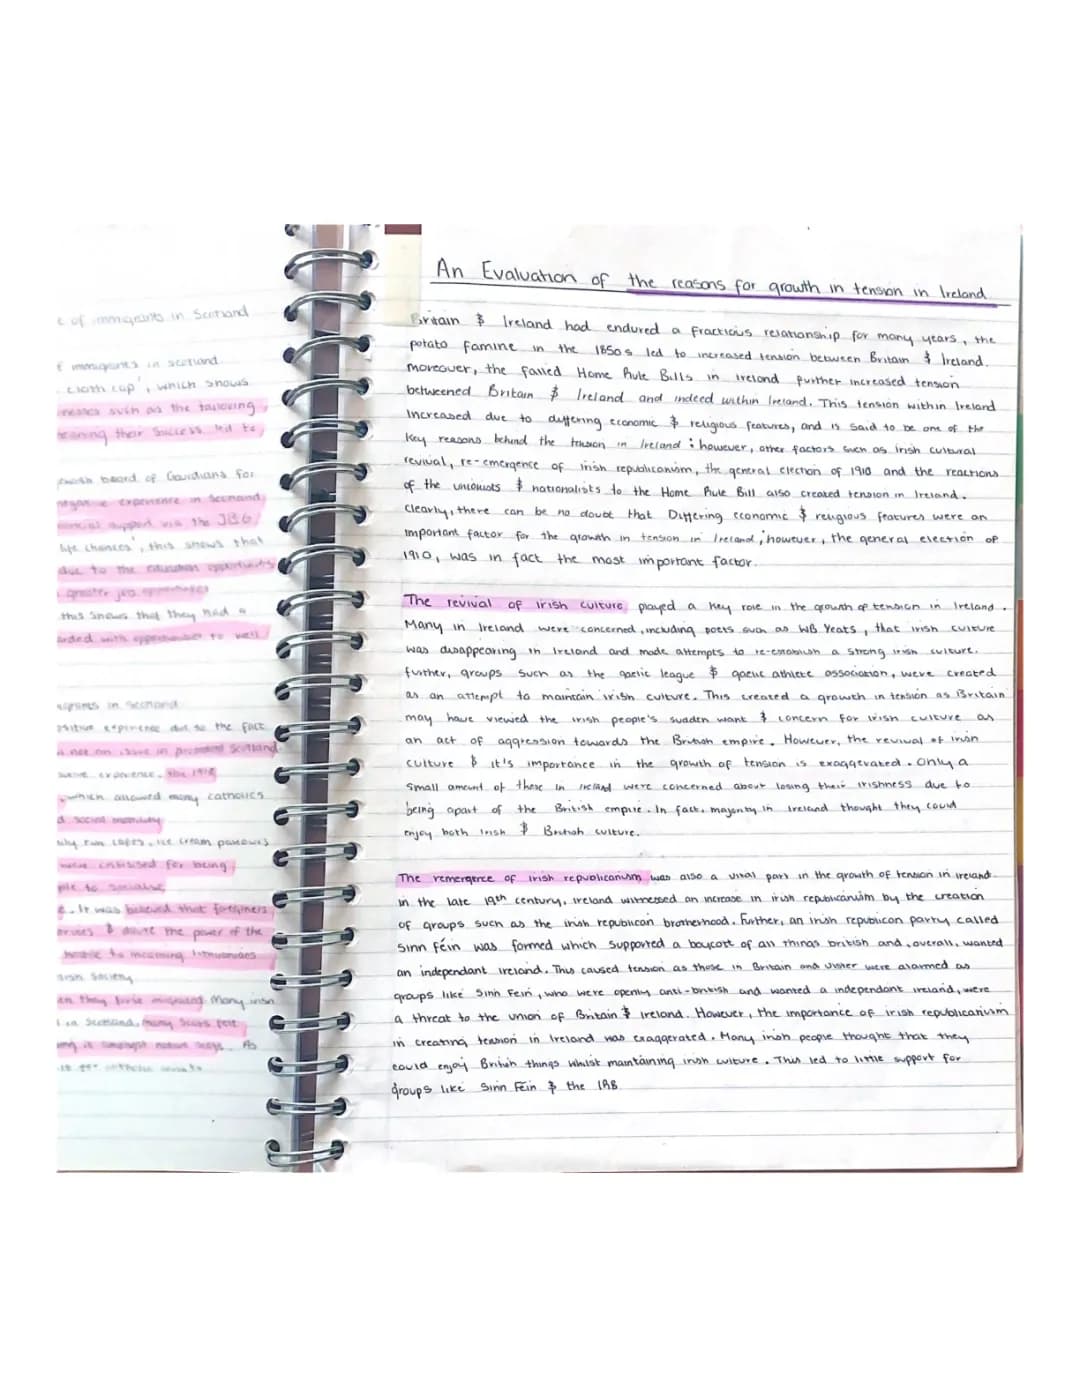 e of immigrants in Scotland
f immigrants in scotland
cloth cap', which shows
such as the tailoring
meaning their success led to
board of Guardians for
negative experience in Scotland
support via the JBG
life chances', this shows that
due to the education opportunities
greater job opportunities
this shows that they had a
with opportunities to well
in Scotland
experience due to the fact
not an issue in Scotland
experience. The 1918
which allowed many catholics
social mobility
run cafes, ice cream parlours
criticised for being
to socialise
It was believed that foreigners
& dilute the power of the
to incoming lithuanians
society
they first migrated. Many irish
in Scotland, many Scots felt
As
An Evaluation of the reasons for growth in tension in Ireland
Britain & Ireland had endured a fractious relationship for many years, the
potato famine in the 1850s led to increased tension between Britain & Ireland.
moreover, the failed Home Rule Bills in ireland further increased tension
betweened Britain & Ireland and indeed within Ireland. This tension within Ireland
Increased due to differing economic & religious features, and is said to be one of the
key reasons behind the tension in Ireland; however, other factors such as Irish cultural
revival, re-emergence of irish republicanism, the general election of 1910 and the reactions
of the unionists & nationalists to the Home Rule Bill also created tension in Ireland.
Clearly, there can be no doubt that Differing economic & religious features were an
important factor for the growth in tension in Ireland; however, the general election of
1910, was in fact the most important factor.
The revival of irish culture played a key role in the growth of tension in Ireland.
Many in Ireland were concerned, including poets such as WB Yeats, that irish culture
was disappearing in Ireland and made attempts to re-establish a strong irish culture.
further, groups such as the gaelic league & gaelic athlete association, were created
as an attempt to maintain irish culture. This created a growth in tension as Britain
may have viewed the irish people's sudden want & concern for irish culture as
an act of aggression towards the British empire. However, the revival of irish
culture & it's importance in the growth of tension is exaggerated. Only a
small amount of those in Ireland were concerned about losing their irishness due to
being apart of the British empire. In fact, majority in Ireland thought they could
enjoy both Irish & British culture.
The remergerce of irish republicanism was also a vital part in the growth of tension in ireland.
in the late 19th century, Ireland witnessed an increase in irish republicanism by the creation
of groups such as the irish republican brotherhood. Further, an irish republican party called
sinn féin was formed which supported a boycott of all things british and, overall, wanted
an independant ireland. This caused tension as those in Britain and Ulster were alarmed as
groups like Sinn Fein, who were openly anti-british and wanted a independant ireland, were
a threat to the union of Britain & Ireland. However, the importance of irish republicanism
in creating tension in Ireland was exaggerated. Many irish people thought that they
could enjoy British things whilst maintaining irish culture. This led to little support for
groups like Sinn Fein & the IRB